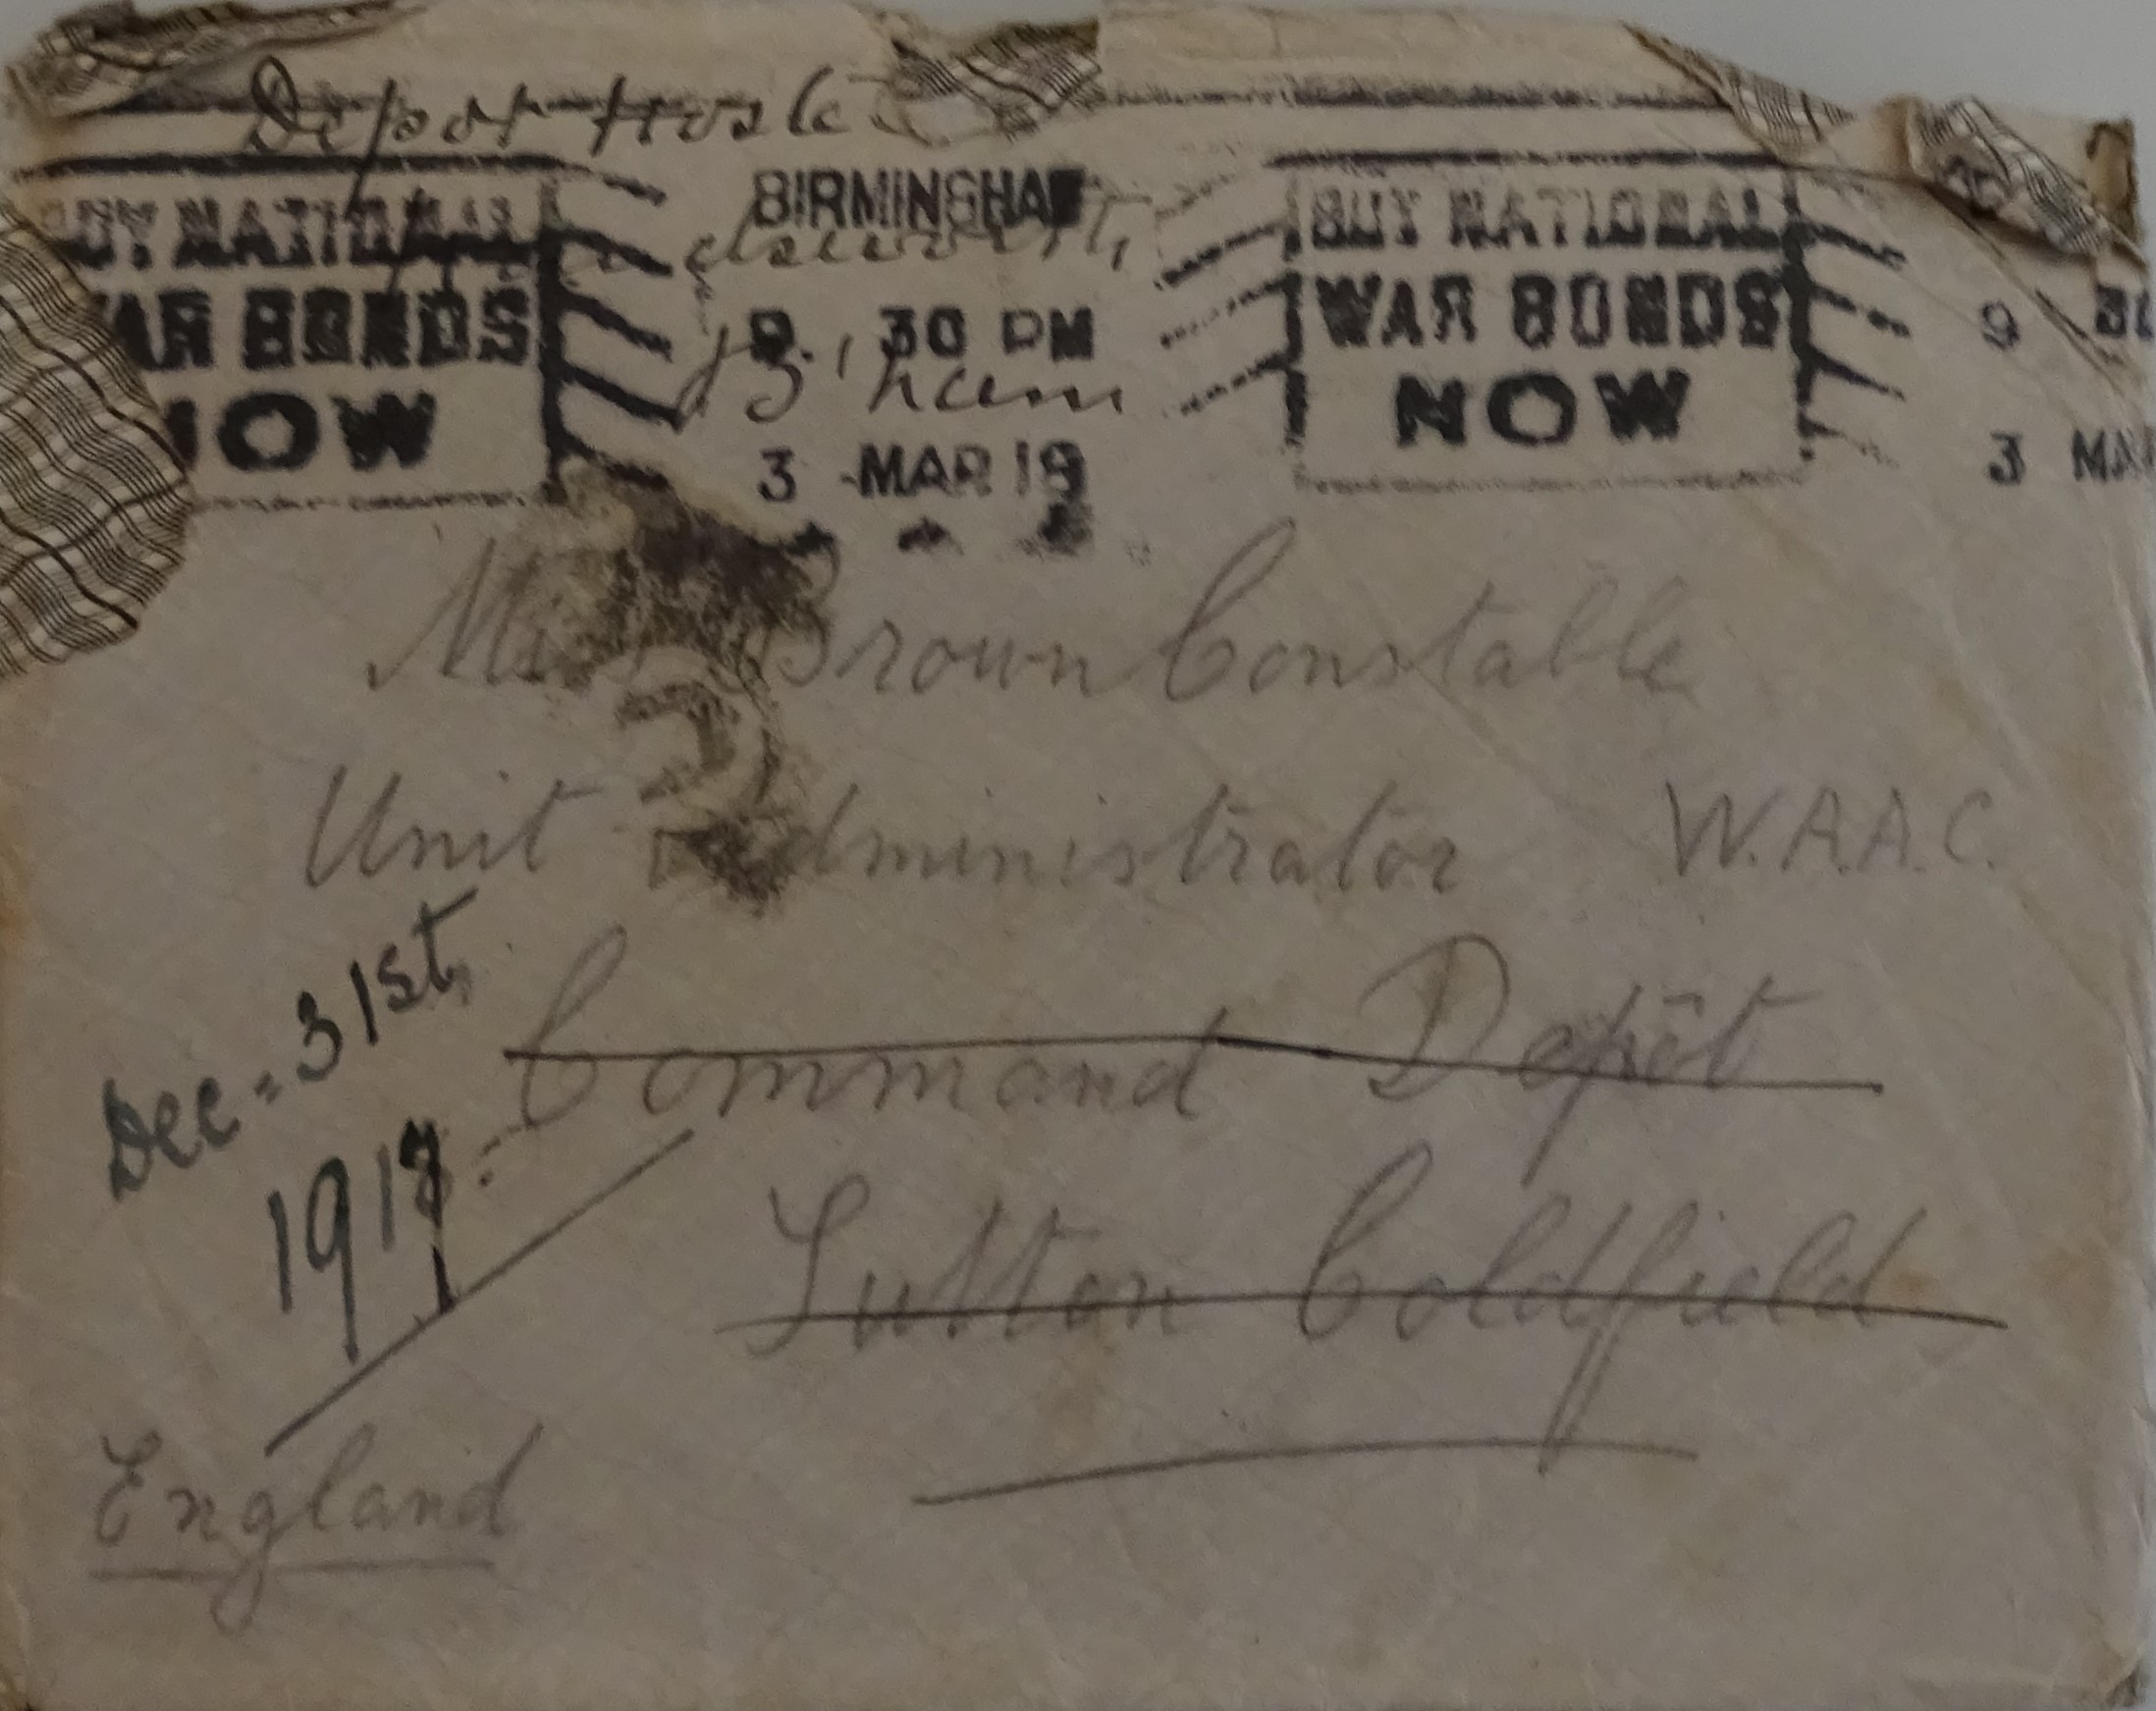 Depot Hostel
BUY NATIONAL
WAR BONDS
NOW
BIRMINGHAM
9. 30 PM
3 -MAR 18
B'ham
BUY NATIONAL
WAR BONDS
NOW
9 30
3 MAR
Miss Brown Constable
Unit Administrator W.A.A.C.
Command Depôt
Sutton Coldfield
Dec. 31st
1917
England